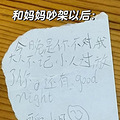 和妈妈吵架以后：
今晚是你不对我
大人不记小人过放
你
还有good
night